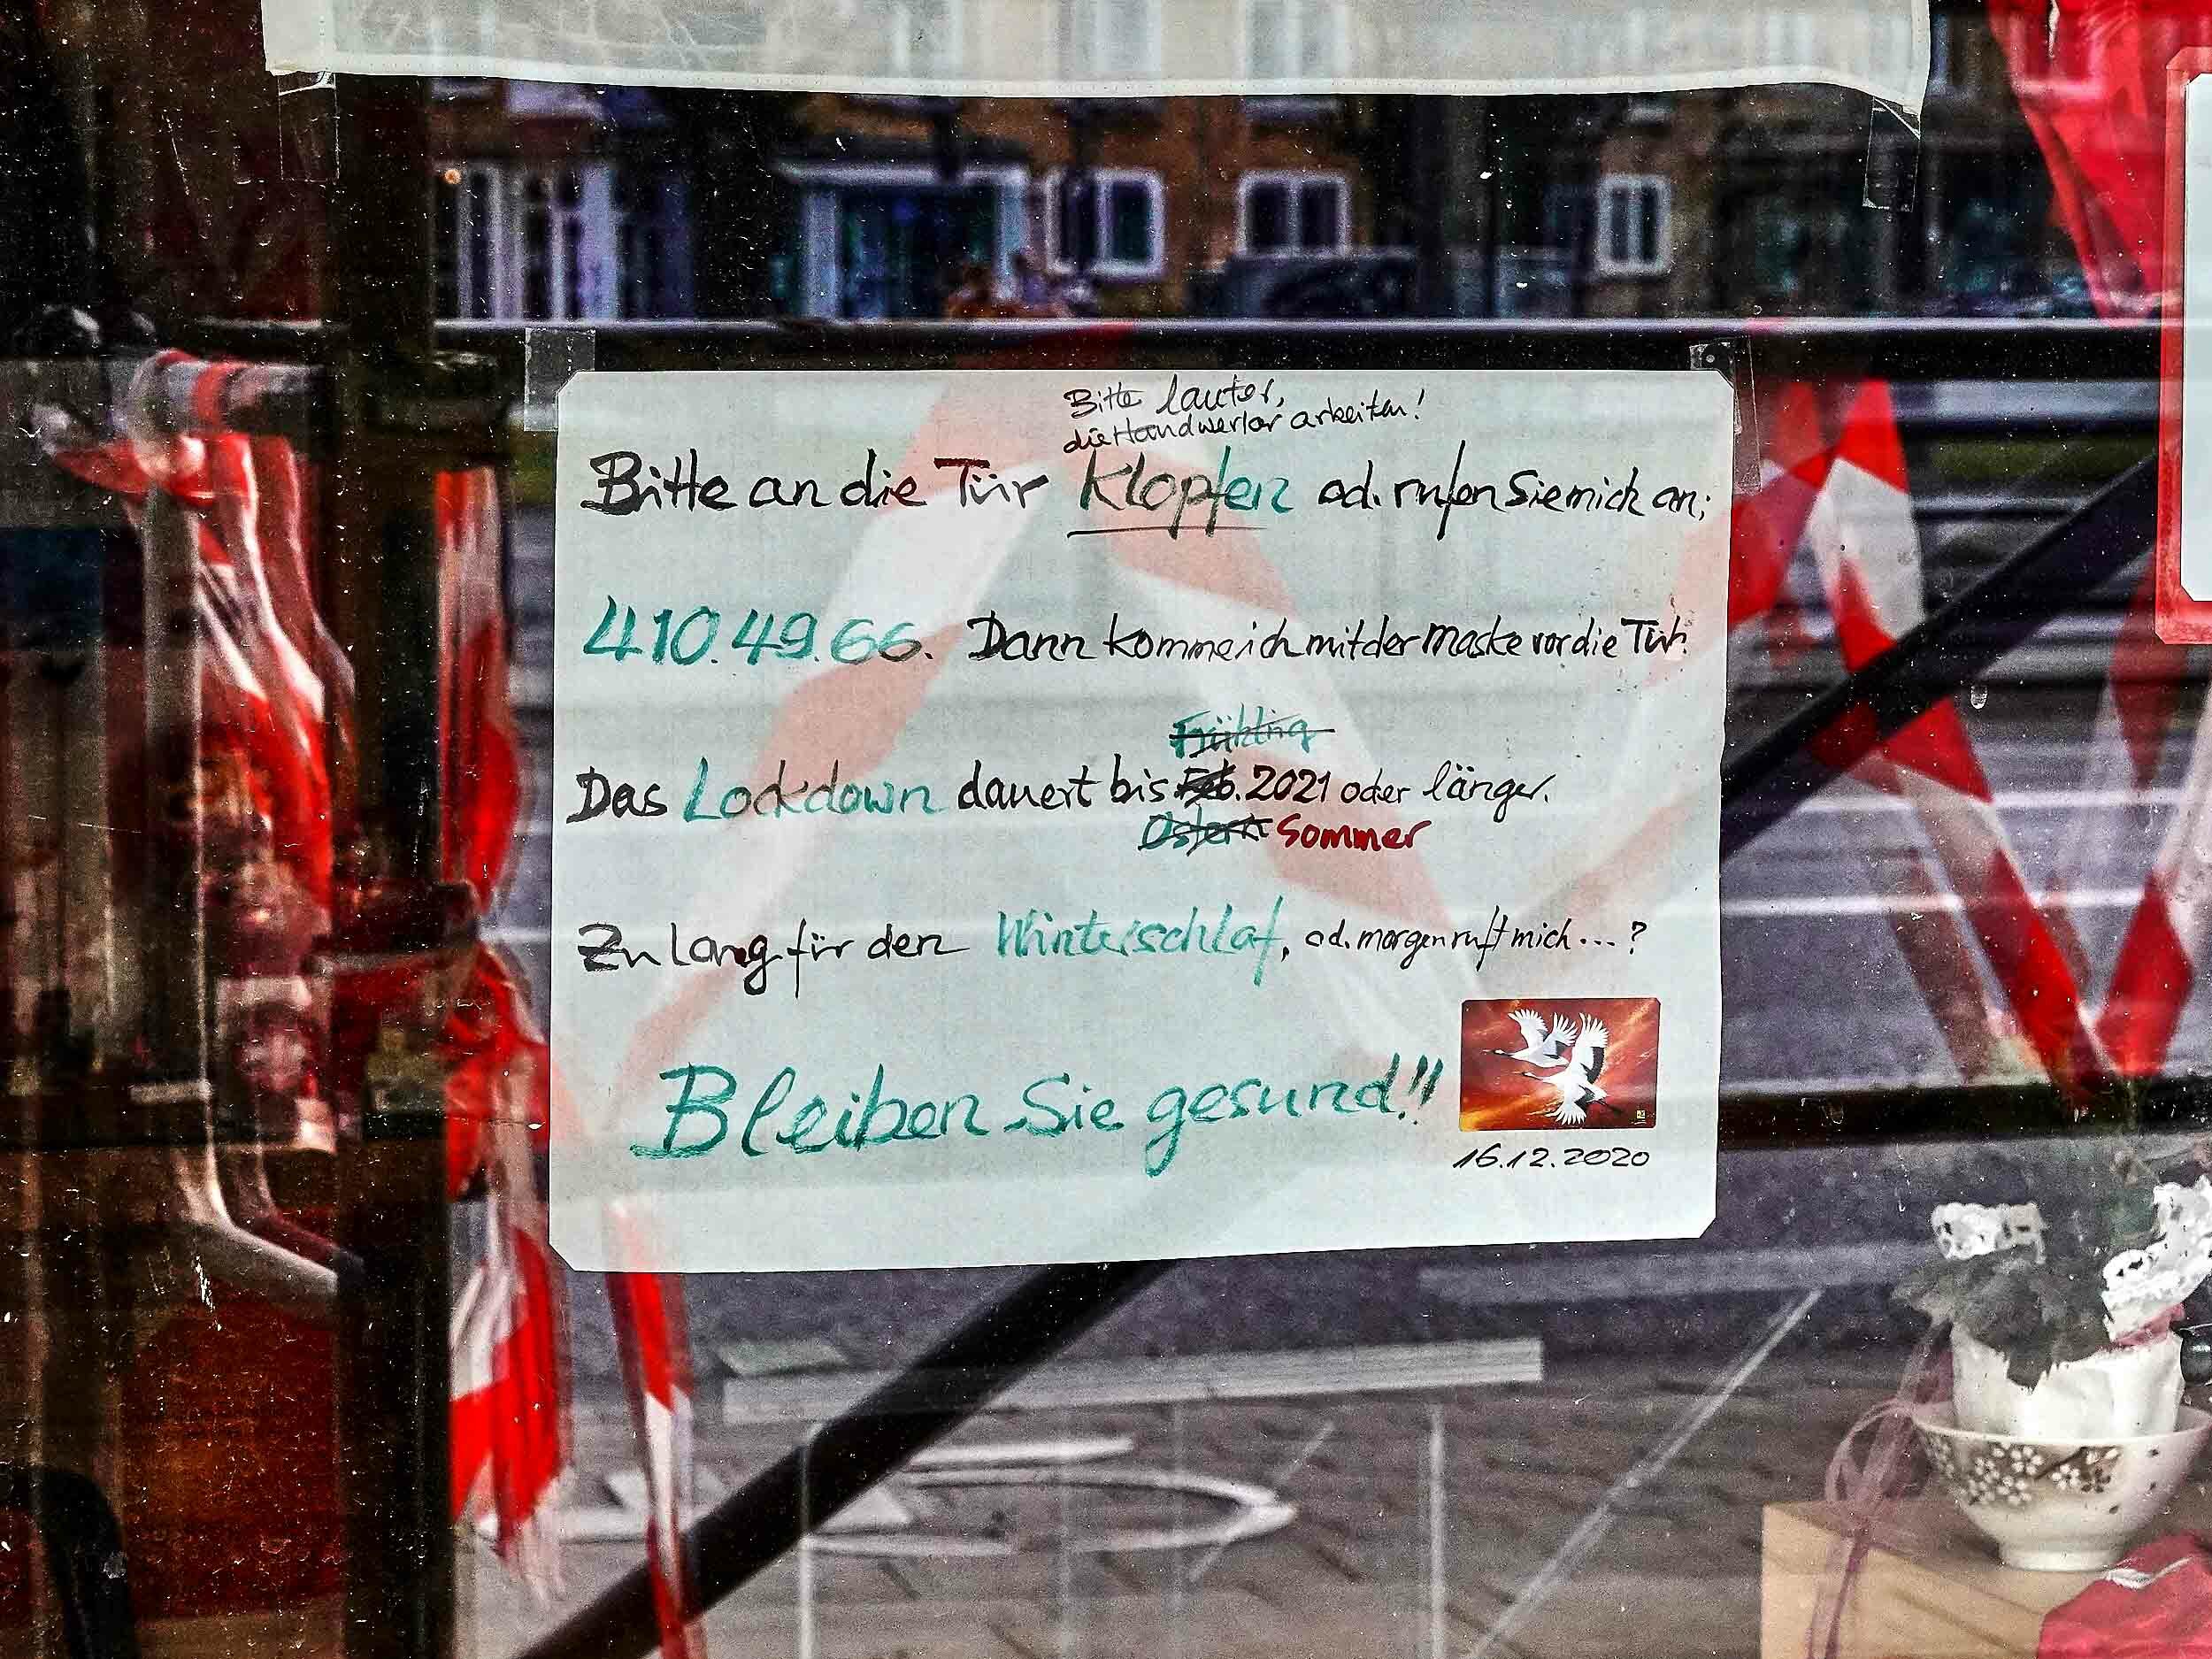 Bitte lauter,
die Handwerker arbeiten!
Bitte an die Tür Klopfen od. rufen Sie mich an;
410.49.66. Dann komme ich mit der Maske vor die Tür.
Frühling
Das Lockdown dauert bis Feb. 2021 oder länger.
Ostern Sommer
Zu lang für den Winterschlaf, od. morgen ruft mich...?
Bleiben Sie gesund!!
16.12.2020